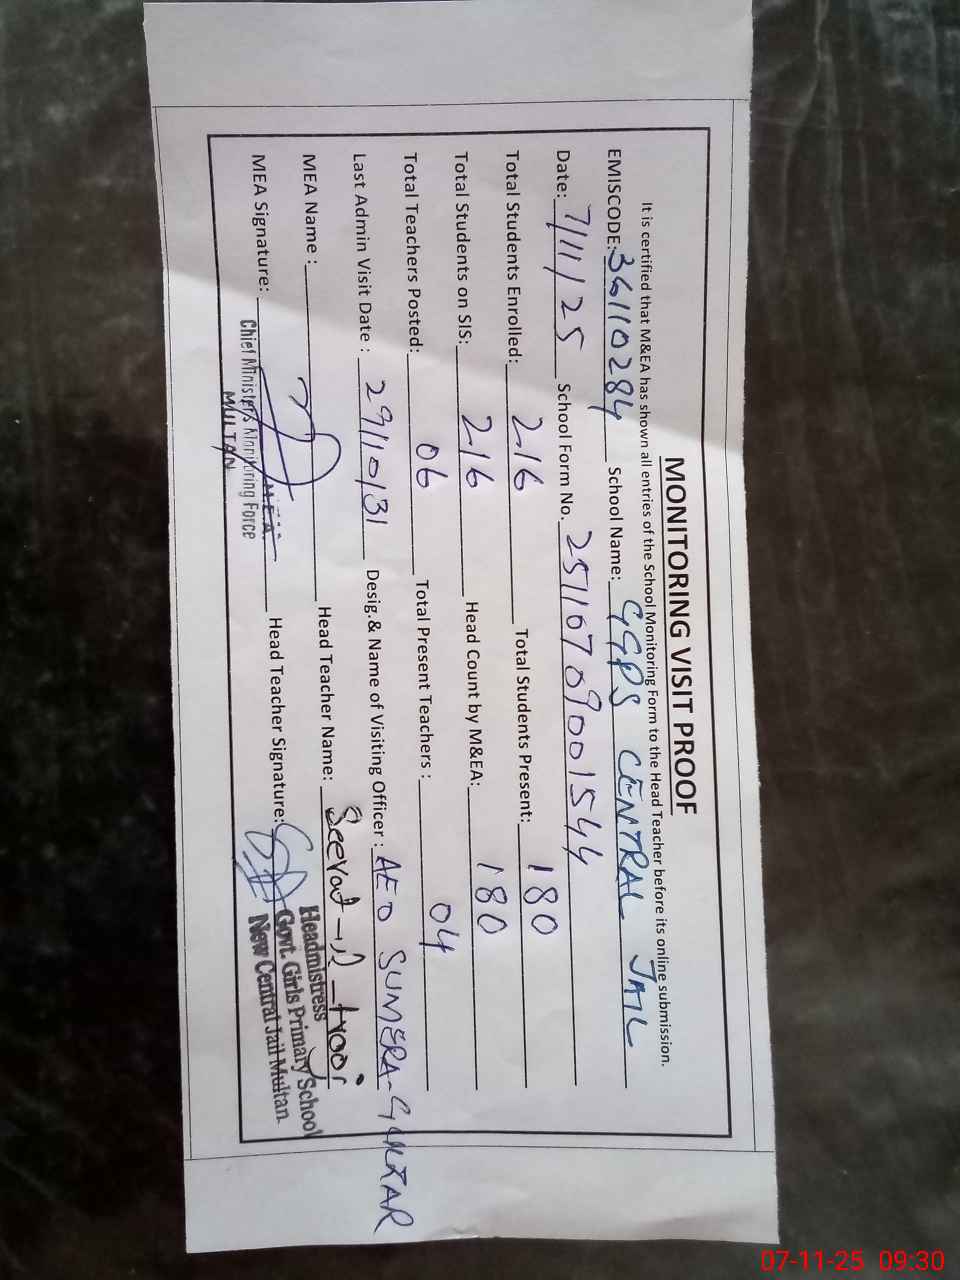 MONITORING VISIT PROOF
It is certified that M&EA has shown all entries of the School Monitoring Form to the Head Teacher before its online submission.
EMISCODE: 36110284 School Name: GGPS CENTRAL JAIL
Date: 7/11/25 School Form No. 25110709001544
Total Students Enrolled: 216 Total Students Present: 180
Total Students on SIS: 216 Head Count by M&EA: 180
Total Teachers Posted: 06 Total Present Teachers : 04
Last Admin Visit Date : 29/10/31 Desig.& Name of Visiting Officer : AEO SUMERA-GULZAR
MEA Name : Head Teacher Name: Seerat-ul-
MEA Signature: Head Teacher Signature:
M.E.A.
Chief Minister's Monitoring Force
MULTAN
Headmistress
Govt. Girls Primary School
New Central Jail Multan.
07-11-25 09:30